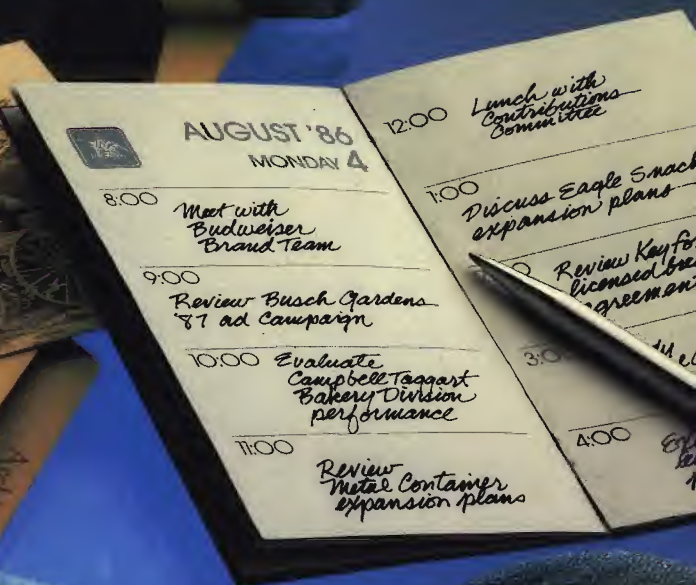 AUGUST '86
MONDAY 4
8:00
Meet with
Budweiser
Brand Team
9:00
Review Busch Gardens
'87 ad Campaign
10:00 Evaluate
Campbell Taggart
Bakery Division
performance
11:00
Review
Metal Container
expansion plans
12:00 Lunch with
Contributions
Committee
1:00
Discuss Eagle Snack
expansion plans
Review Key for
licensed
agreement
3:0
4:00